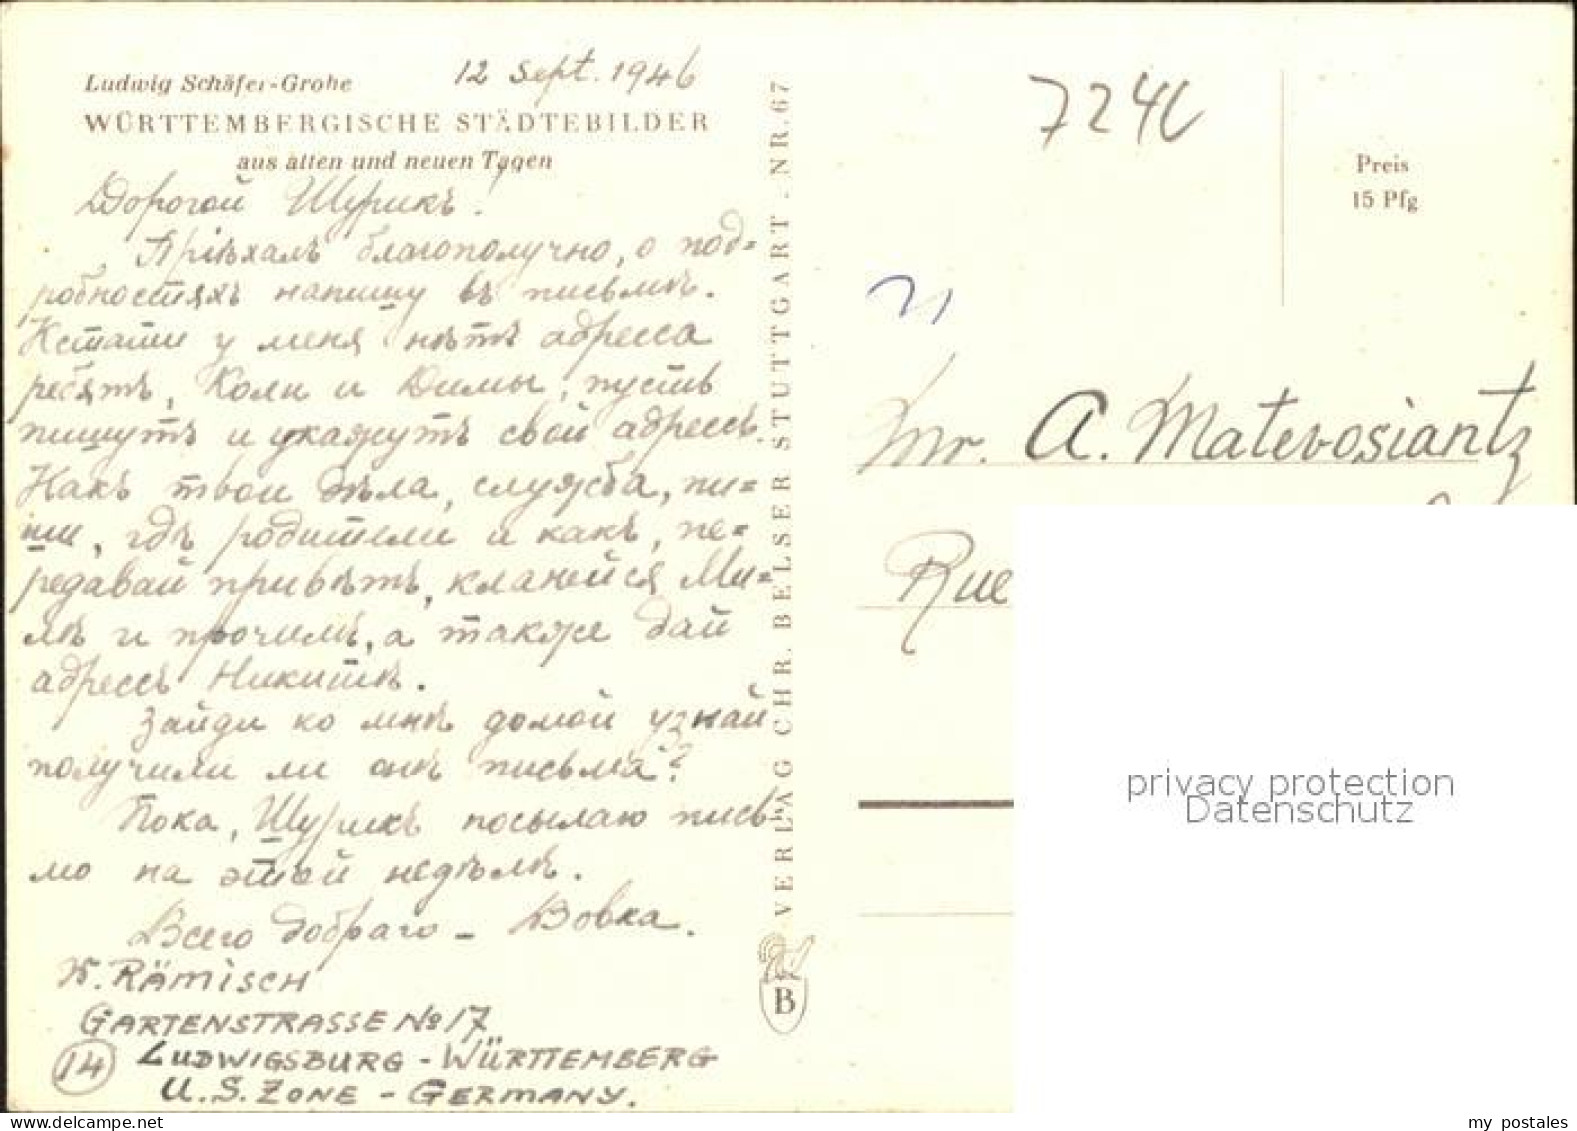 12 Sept. 1946
Ludwig Schäfer-Grohe
WÜRTTEMBERGISCHE STÄDTEBILDER
aus alten und neuen Tagen
Дорогой Шурикъ!
Пріѣхалъ благополучно, о под=
робностяхъ напишу въ письмѣ.
Кстати у меня нѣтъ адресса
ребятъ, Коли и Димы, пусть
пишутъ и укажутъ свой адрессъ.
Какъ твои дѣла, служба, пи=
ши, гдѣ родители и какъ, пе=
редавай привѣтъ, кланейся Ми=
лѣ и прочимъ, а также дай
адрессъ Никитѣ.
Зайди ко мнѣ домой узнай
получили ли онѣ письма?
Пока, Шурикъ посылаю пись
мо на этой недѣлѣ.
Всего добраго – Вовка.
W. RÄMISCH
GARTENSTRASSE No 17
14 LUDWIGSBURG - WÜRTTEMBERG
U.S. ZONE - GERMANY.
VERLAG CHR. BELSER STUTTGART . NR. 67
B
Preis
15 Pfg
Mr. A. Matevosiantz
Rue
privacy protection
Datenschutz
www.delcampe.net
my_postales